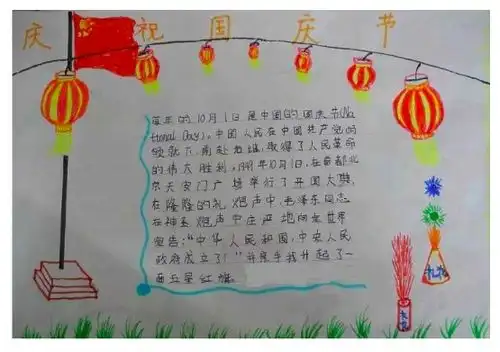 庆祝国庆节
每年的10月1日是中国的国庆节(Na
tional Day)。中国人民在中国共产党的
领就下,前赴后继,取得了人民革命
的伟大胜利。1949年10月1日,在首都北
京天安门广场举行了开国大典,
在隆隆的礼炮声中,毛泽东同志
在神圣炮声中庄严地向全世界
宣告:“中华人民和国,中央人民
政府成立了!”并亲手按升起了一
面五星红旗。
礼花